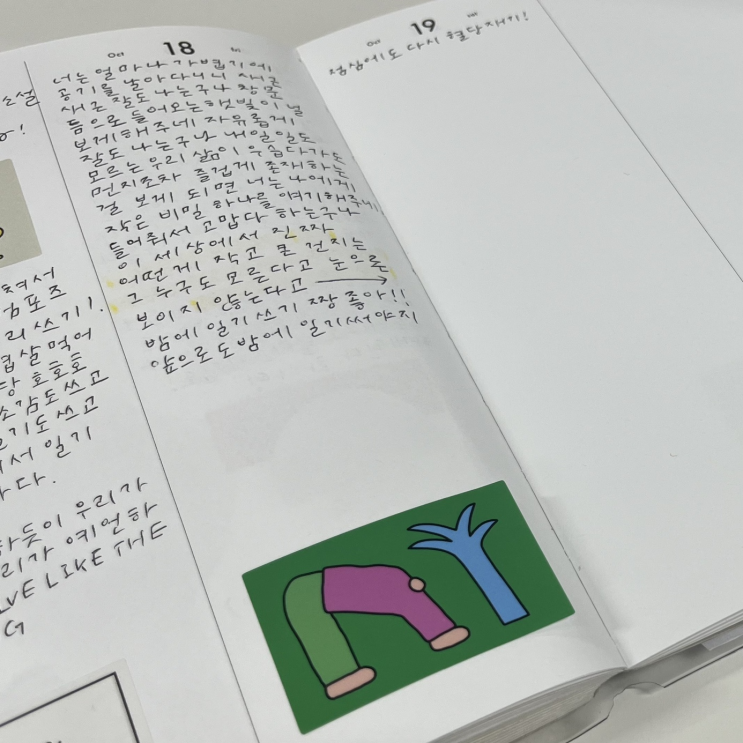 소설
혀서
컴포즈
리쓰기!
켭살먹어
당 호호호
소감도쓰고
일기
하듯이 우리가
리가 예언하
LIKE THE
G
Oct 18 fri
너는 얼마나 가볍기에
공기를 날아다니니 새근
새근 잘도 나는구나 창문
틈으로 들어오는 햇빛이 널
보게해주네 자유롭게
잘도 나는구나 내일일도
모르는 우리 삶이 우습다가도
먼지조차 즐겁게 존재하는
걸 보게 되면 너는 나에게
작은 비밀 하나를 얘기해주네
들어줘서 고맙다 하는구나
이 세상에서 진짜
어떤게 작고 큰 건지는
그 누구도 모른다고 눈으론
보이지 않는다고
밤에 일기쓰기 짱 좋아!!
앞으로도 밤에 일기써야지
Oct 19 sat
점심에도 다시 헐다재기!